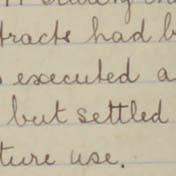 tracts had b
executed a
but settled
ture use.